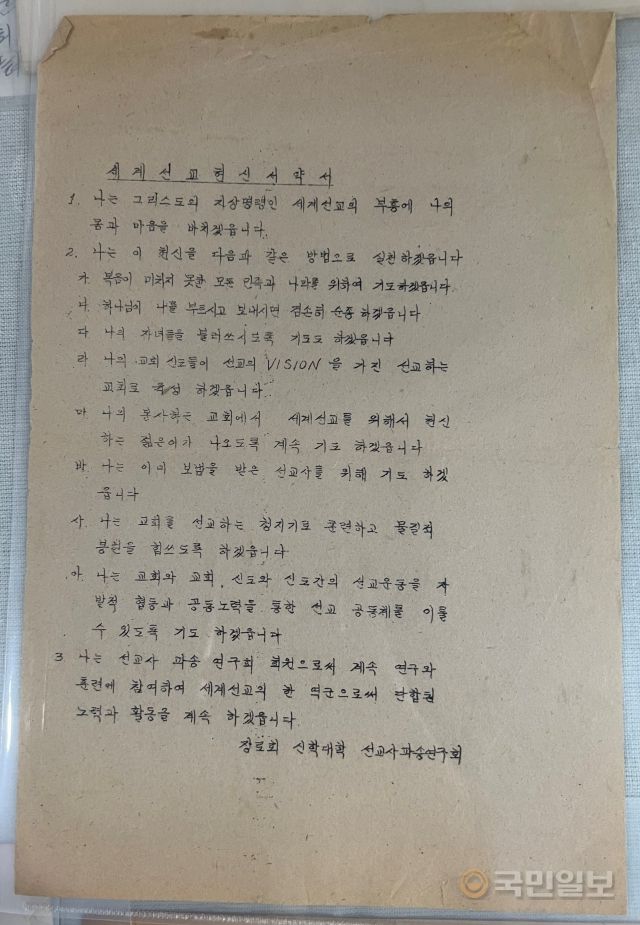 세계선교헌신서약서
1. 나는 그리스도의 지상명령인 세계선교의 부흥에 나의
몸과 마음을 바치겠읍니다.
2. 나는 이 헌신을 다음과 같은 방법으로 실천하겠읍니다
가. 복음이 미치지 못한 모든 민족과 나라를 위하여 기도하겠읍니다.
나. 하나님이 나를 부르시고 보내시면 겸손히 순종 하겠읍니다
다. 나의 자녀들을 불러쓰시도록 기도도 하겠읍니다
라. 나의 교회 신도들이 선교의 VISION 을 가진 선교하는
교회로 육성 하겠읍니다.
마. 나의 봉사하는 교회에서 세계선교를 위해서 헌신
하는 젊은이가 나오도록 계속 기도 하겠읍니다
바. 나는 이미 보냄을 받은 선교사를 위해 기도 하겠
읍니다
사. 나는 교회를 선교하는 청지기로 훈련하고 물질적
봉헌을 힘쓰도록 하겠읍니다
아. 나는 교회와 교회, 신도와 신도간의 선교운동을 자
발적 협동과 공동노력을 통한 선교 공동체를 이룰
수 있도록 기도 하겠읍니다
3. 나는 선교사 파송 연구회 회원으로써 계속 연구와
훈련에 참여하여 세계선교의 한 역군으로써 단합된
노력과 활동을 계속 하겠읍니다.
장로회 신학대학 선교사파송연구회
국민일보